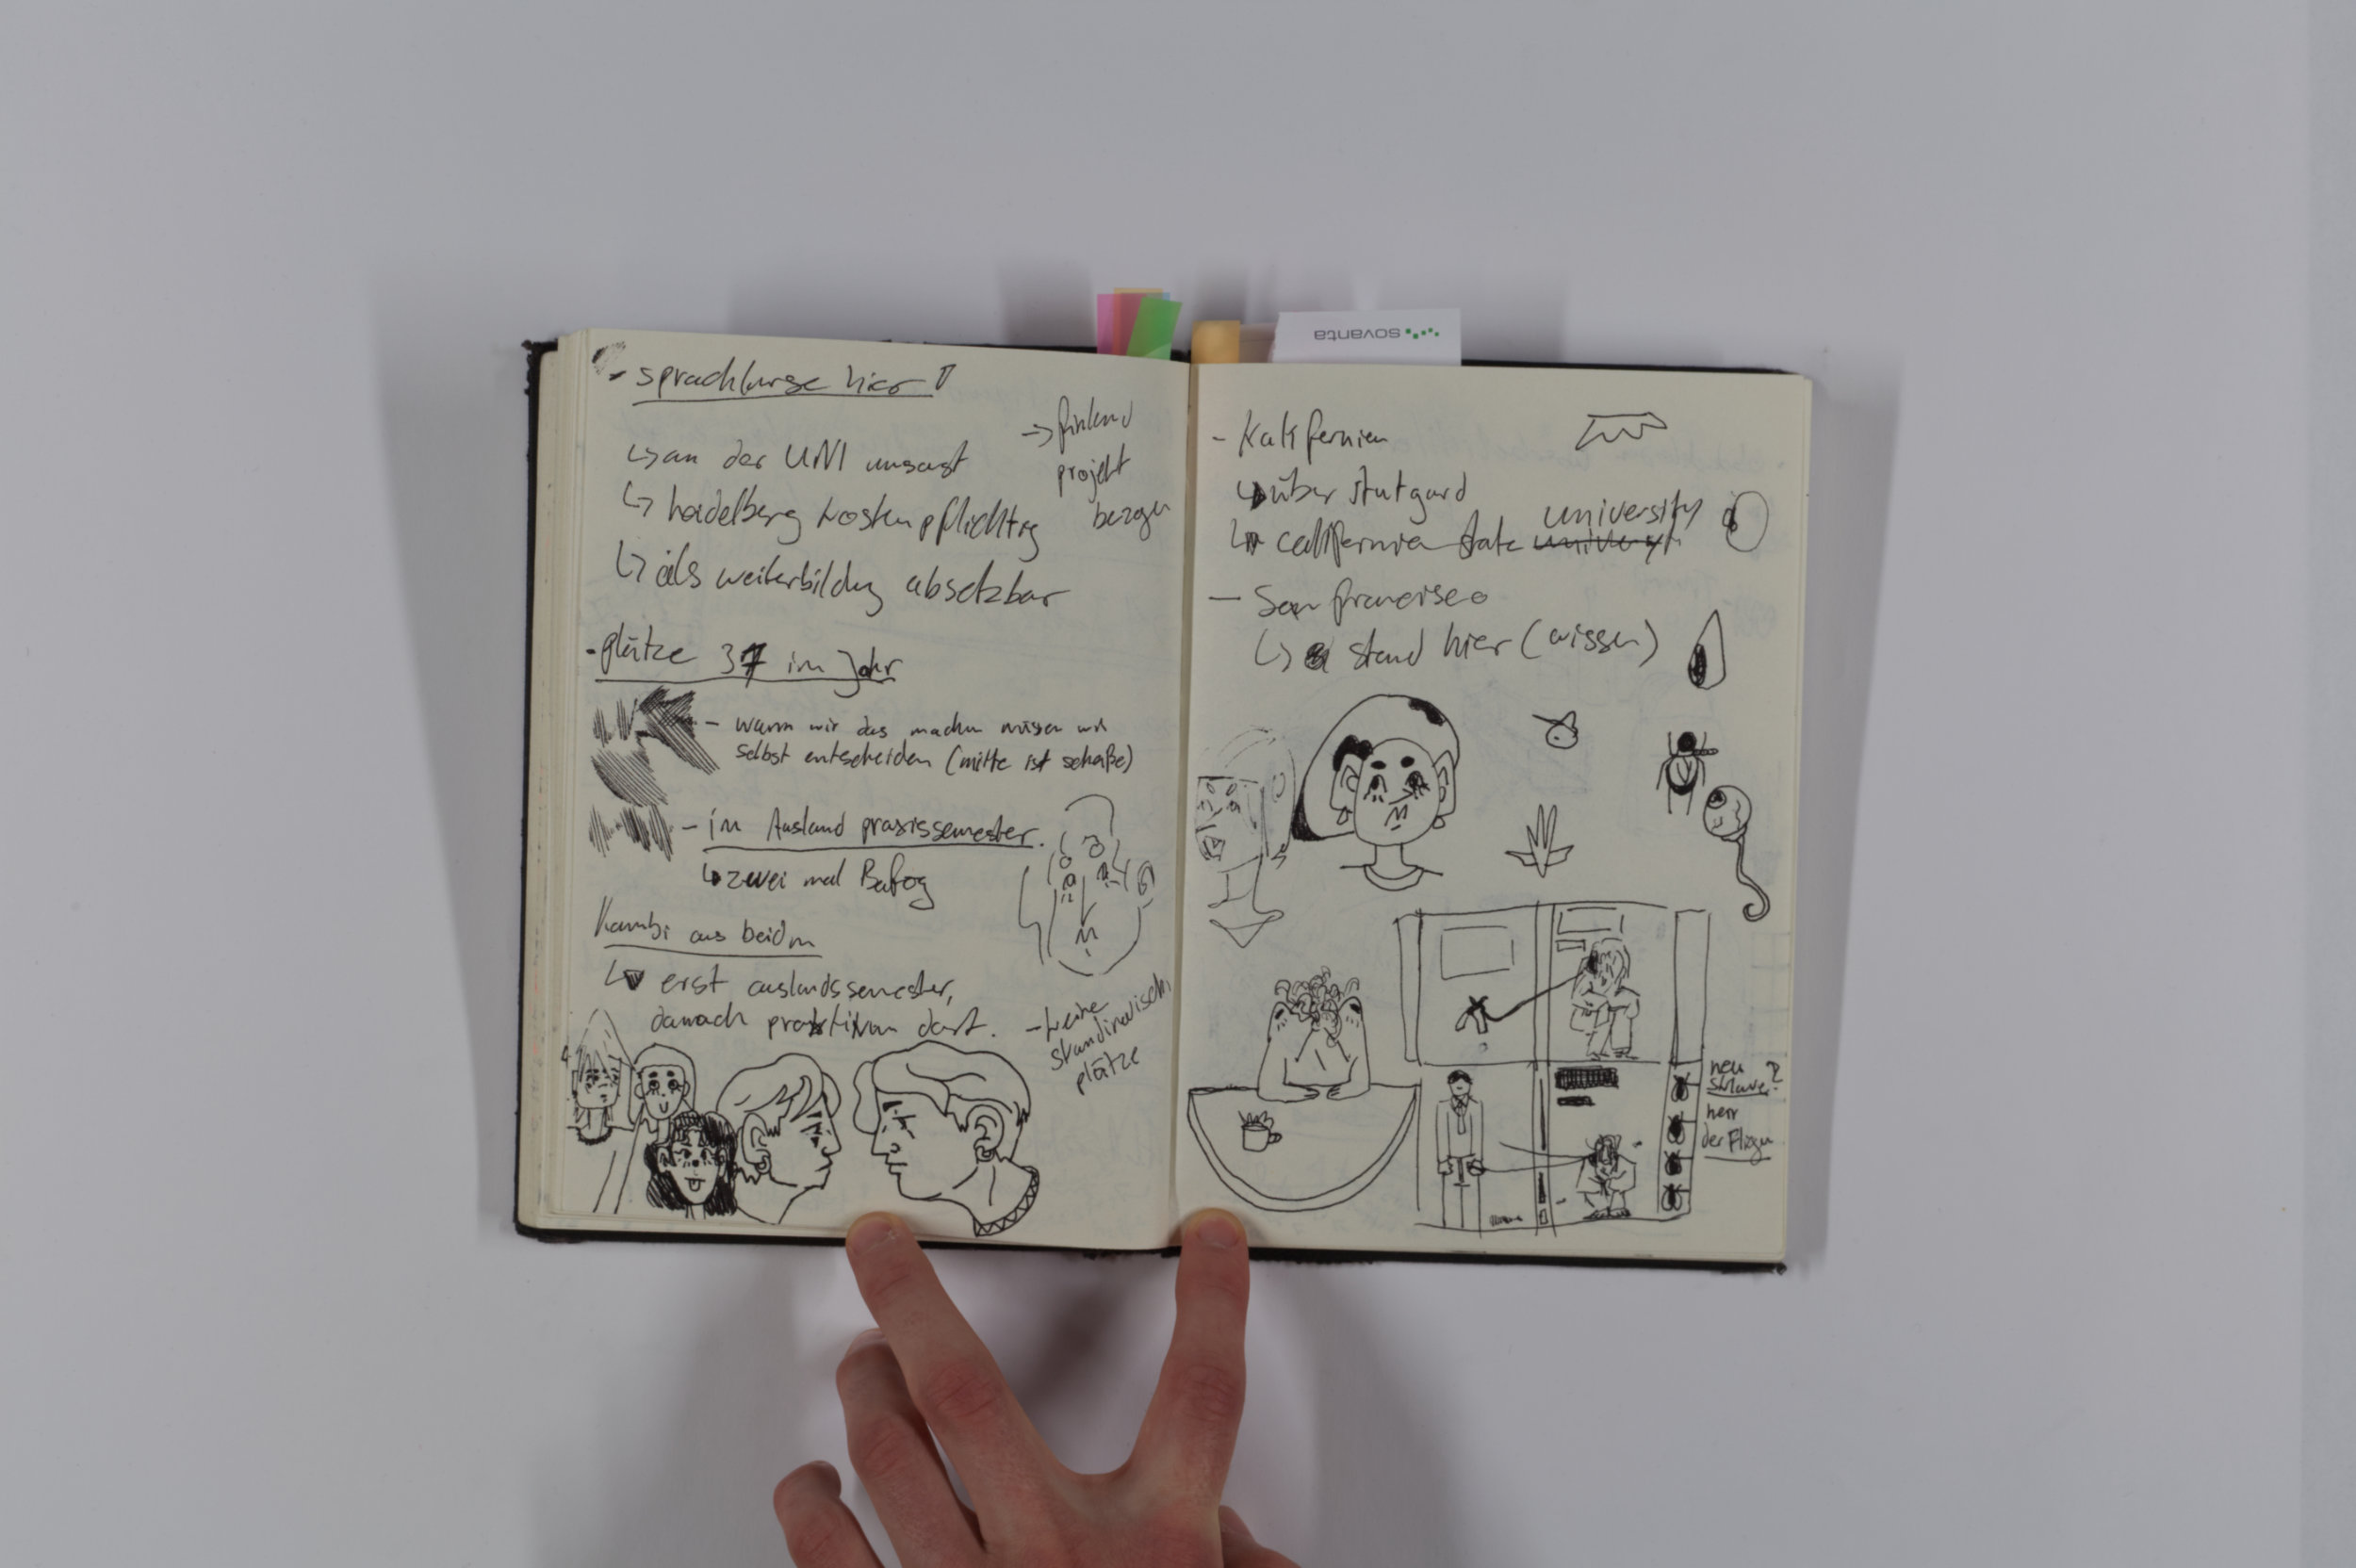 - sprachkurse hier!
↳ an der UNI umsonst
↳ heidelberg kostenpflichtig
↳ als weiterbildung absetzbar
→ finland
projekt
bezogen
- plätze 37 im Jahr
- wann wir das machen müssen wir
selbst entscheiden (mitte ist scheiße)
- im Ausland praxissemester.
↳ zwei mal Bafög
Kombi aus beidm
↳ erst auslandssemester,
danach praktikum dort.
- keine
skandinavisch
plätze
sovanta
- Kalifornien
↳ über stutgard
↳ california state university
- San francisco
↳ stand hier (wissen)
neu
herr
der Fliegen